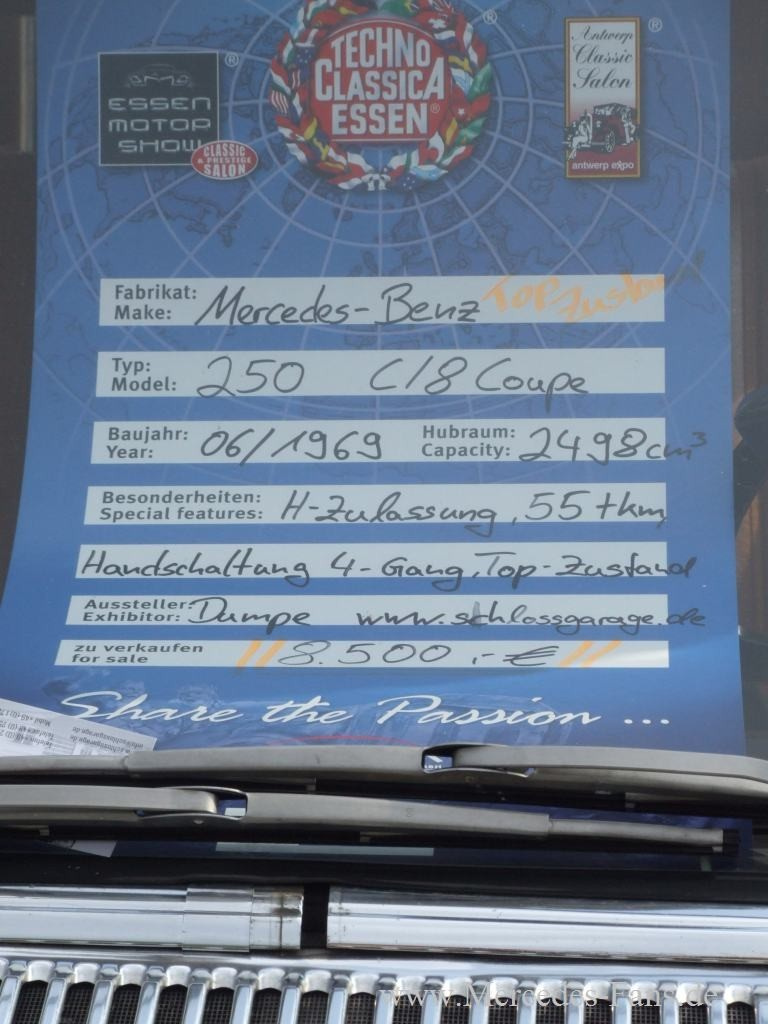 ESSEN
MOTOR
SHOW
®
CLASSIC
& PRESTIGE
SALON
TECHNO
CLASSICA
ESSEN®
®
Antwerp
Classic
Salon
antwerp expo
®
Fabrikat:
Make: Mercedes-Benz Top Zustand
Typ:
Model: 250 C/8 Coupe
Baujahr:
Year: 06/1969 Hubraum:
Capacity: 2498cm³
Besonderheiten:
Special features: H-Zulassung, 55 tkm
Handschaltung 4-Gang, Top-Zustand
Aussteller:
Exhibitor: Dumpe www.schlossgarage.de
zu verkaufen
for sale //8.500,-€//
Share the Passion ...
www.Mercedes-Fans.de